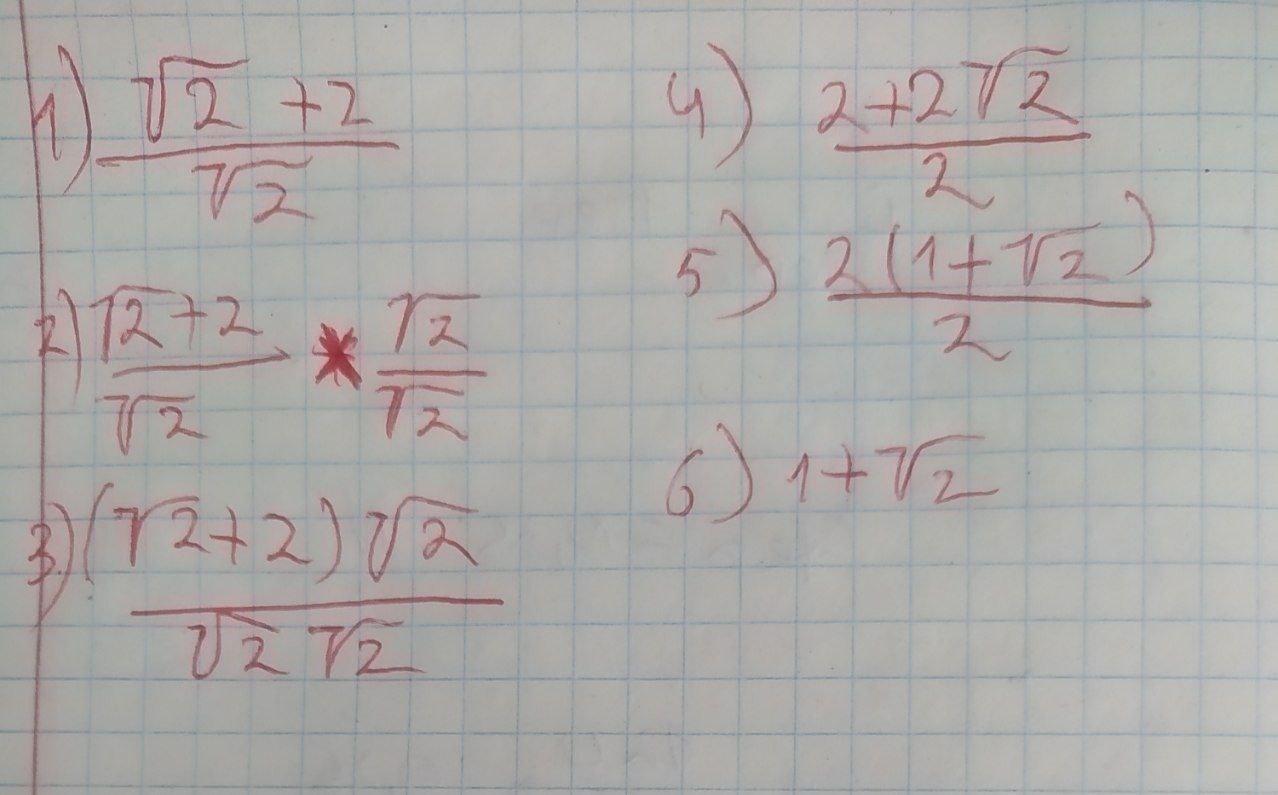 1) (√2 + 2)/√2
2) (√2 + 2)/√2 * √2/√2
3) ((√2 + 2) √2)/(√2 √2)
4) (2 + 2√2)/2
5) (2(1 + √2))/2
6) 1 + √2